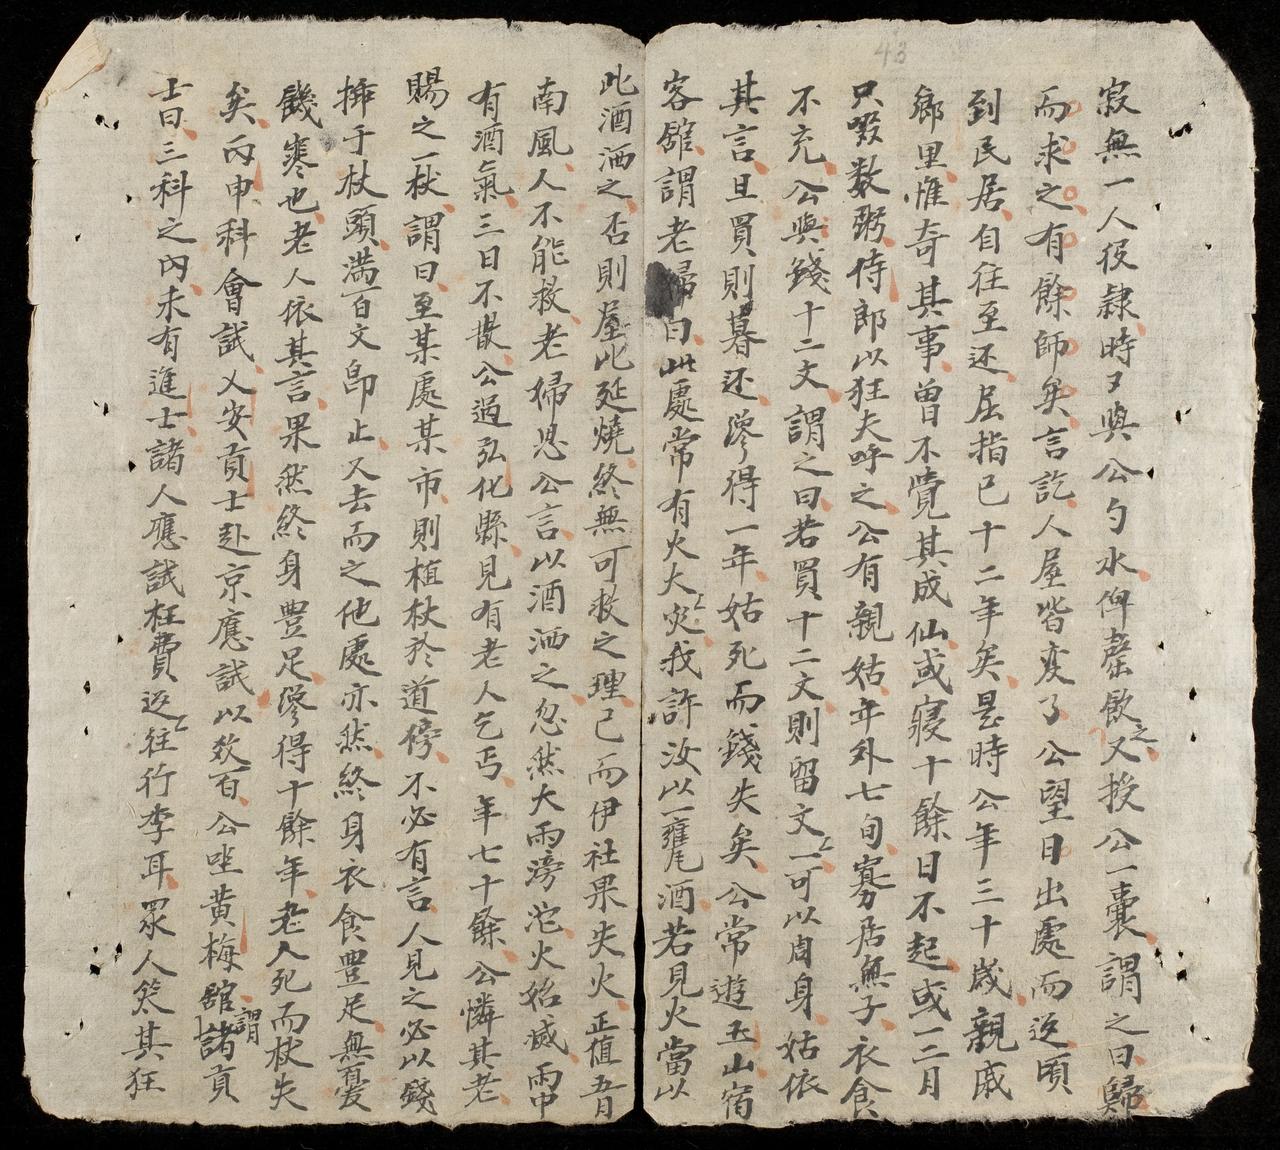 43
寂無一人役隸時又與公勺水俾罄飲之又授公一囊謂之曰歸
而求之有餘師矣言訖人屋皆变了公望日出處而返頃
到民居自往至还屈指已十二年矣是時公年三十歲親戚
鄉里惟奇其事曾不覺其成仙或寢十餘日不起或一二月
只啜数粥侍郎以狂夫呼之公有親姑年外七旬寡居無子衣食
不充公與錢十二文謂之曰若買十二文則留文一可以周身姑依
其言旦買則暮还繆得一年姑死而錢失矣公常遊玉山宿
客舘謂老婦曰此處常有火大災我許汝以一甕酒若見火當以
此酒洒之否則屋比延燒終無可救之理已而伊社果失火正值五月
南風人不能救老婦思公言以酒洒之忽然大雨滂沱火始滅雨中
有酒氣三日不散公過弘化縣見有老人乞丐年七十餘公憐其老
賜之一杖謂曰至某處某市則植杖於道傍不必有言人見之必以錢
掛于杖頭満百文卽止又去而之他處亦然終身衣食豊足無憂
饑寒也老人依其言果然終身豊足繆得十餘年老人死而杖失
矣丙申科會試乂安貢士赴京應試以数百公坐黄梅舘謂諸貢
士曰三科之內未有進士諸人應試枉費返往行李耳眾人笑其狂